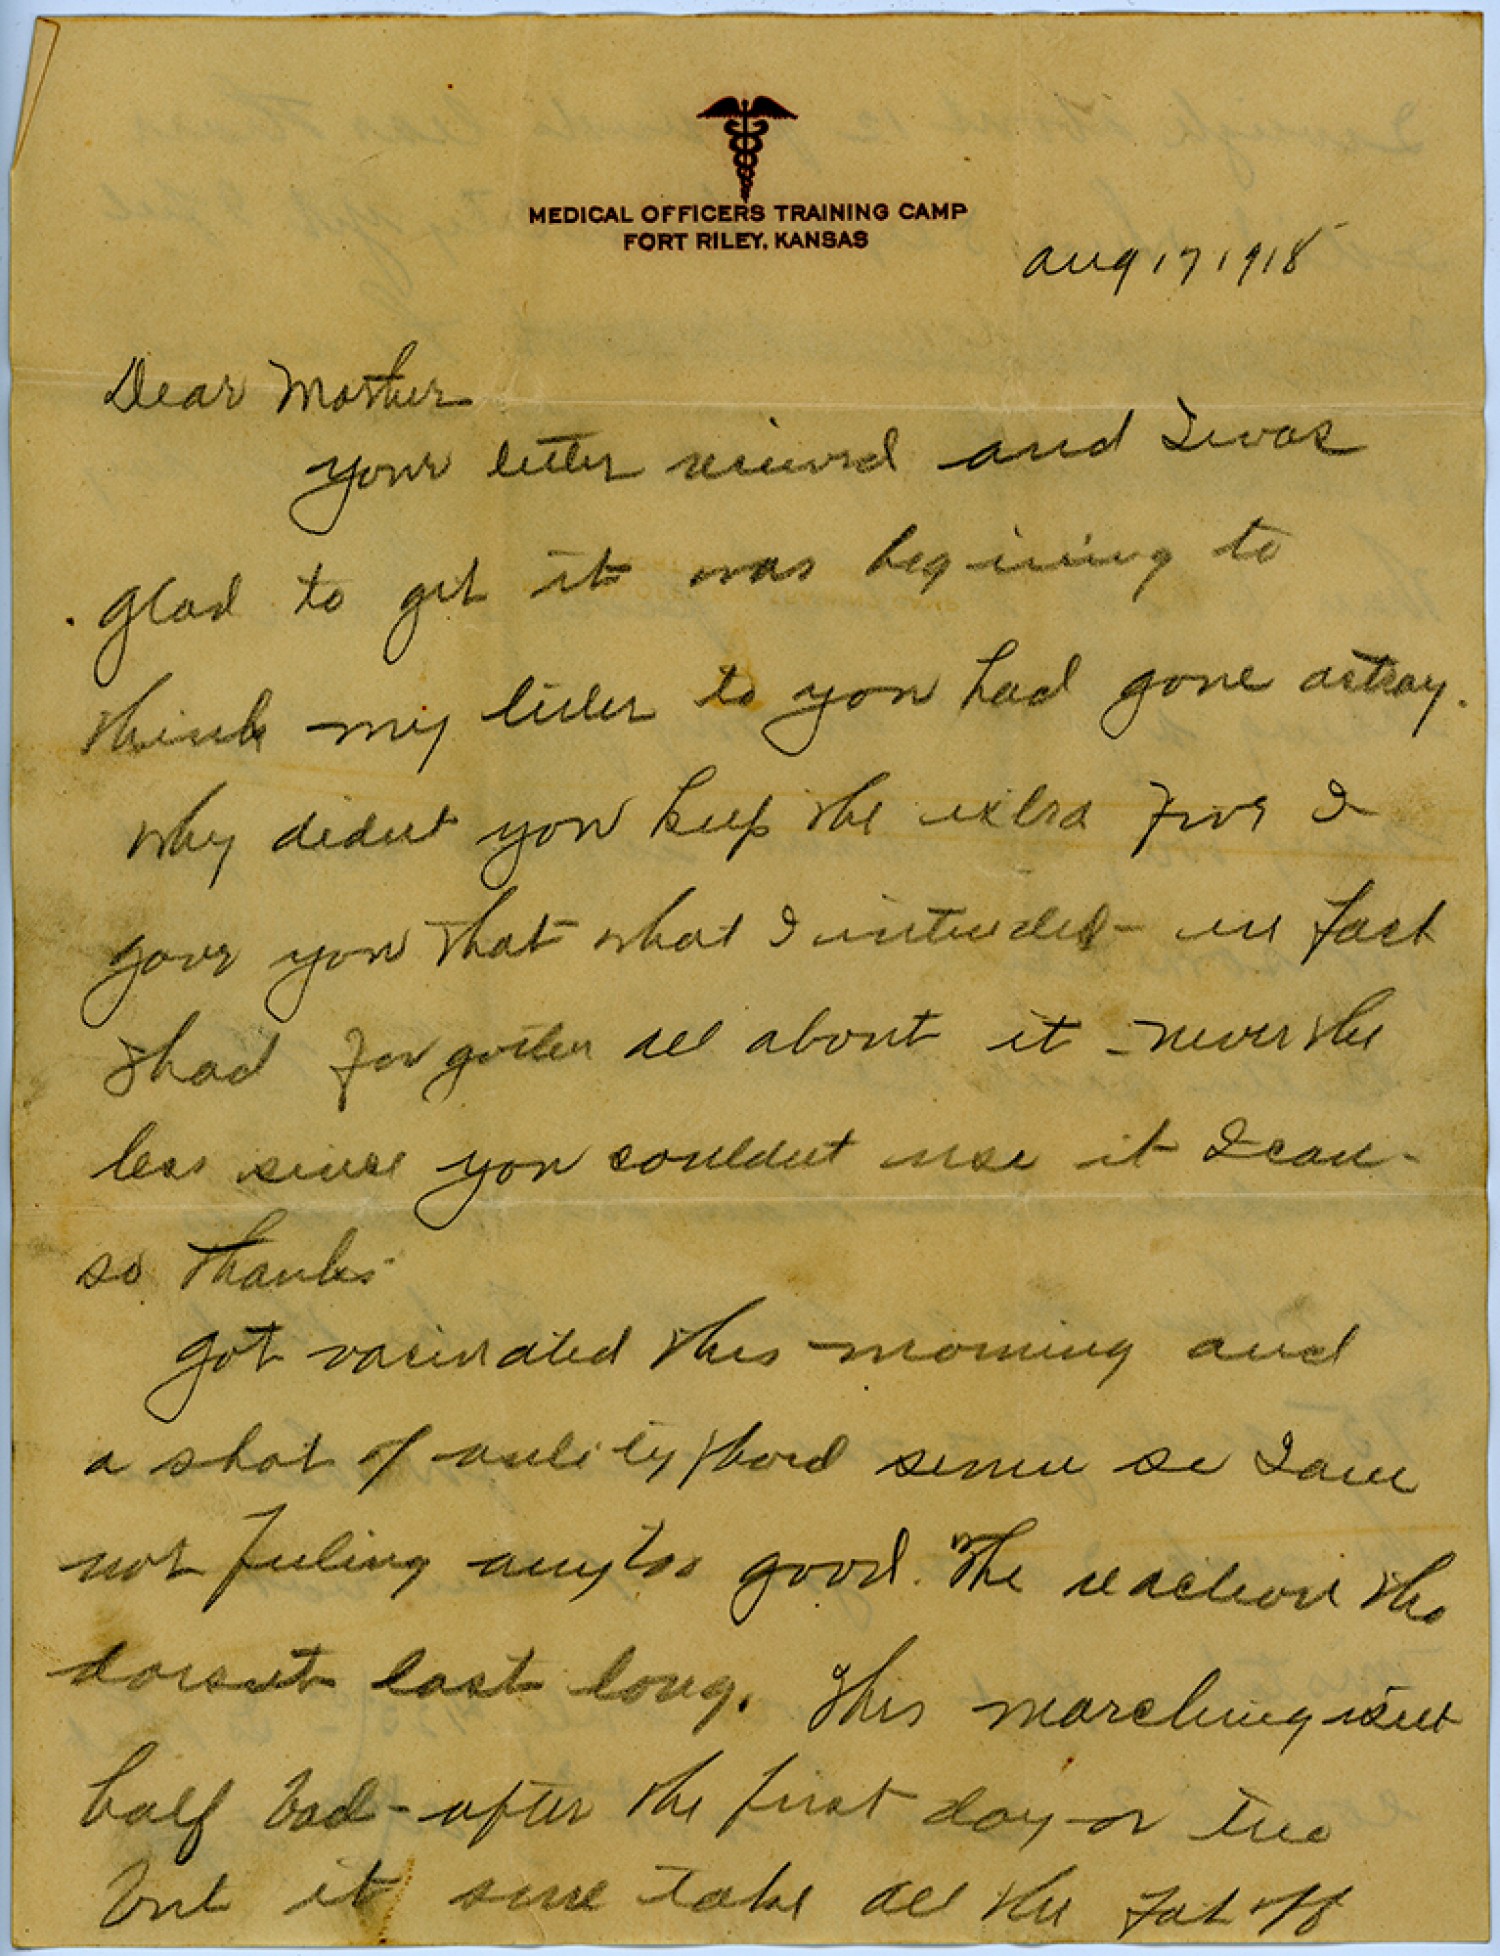 MEDICAL OFFICERS TRAINING CAMP
FORT RILEY, KANSAS
Aug 17 1918
Dear Mother
your letter recieved and I was
glad to get it was begining to
think my letter to you had gone astray.
Why didnt you keep the extra five I
gave you that what I intended - in fact
I had forgotten all about it - never the
less since you couldnt use it I can -
so thanks
Got vaccinated this morning and
a shot of antityphoid serum so I am
not feeling any too good. The reaction tho
doesnt last long. This marching isnt
half bad - after the first day or two
but it sure take all the fat off